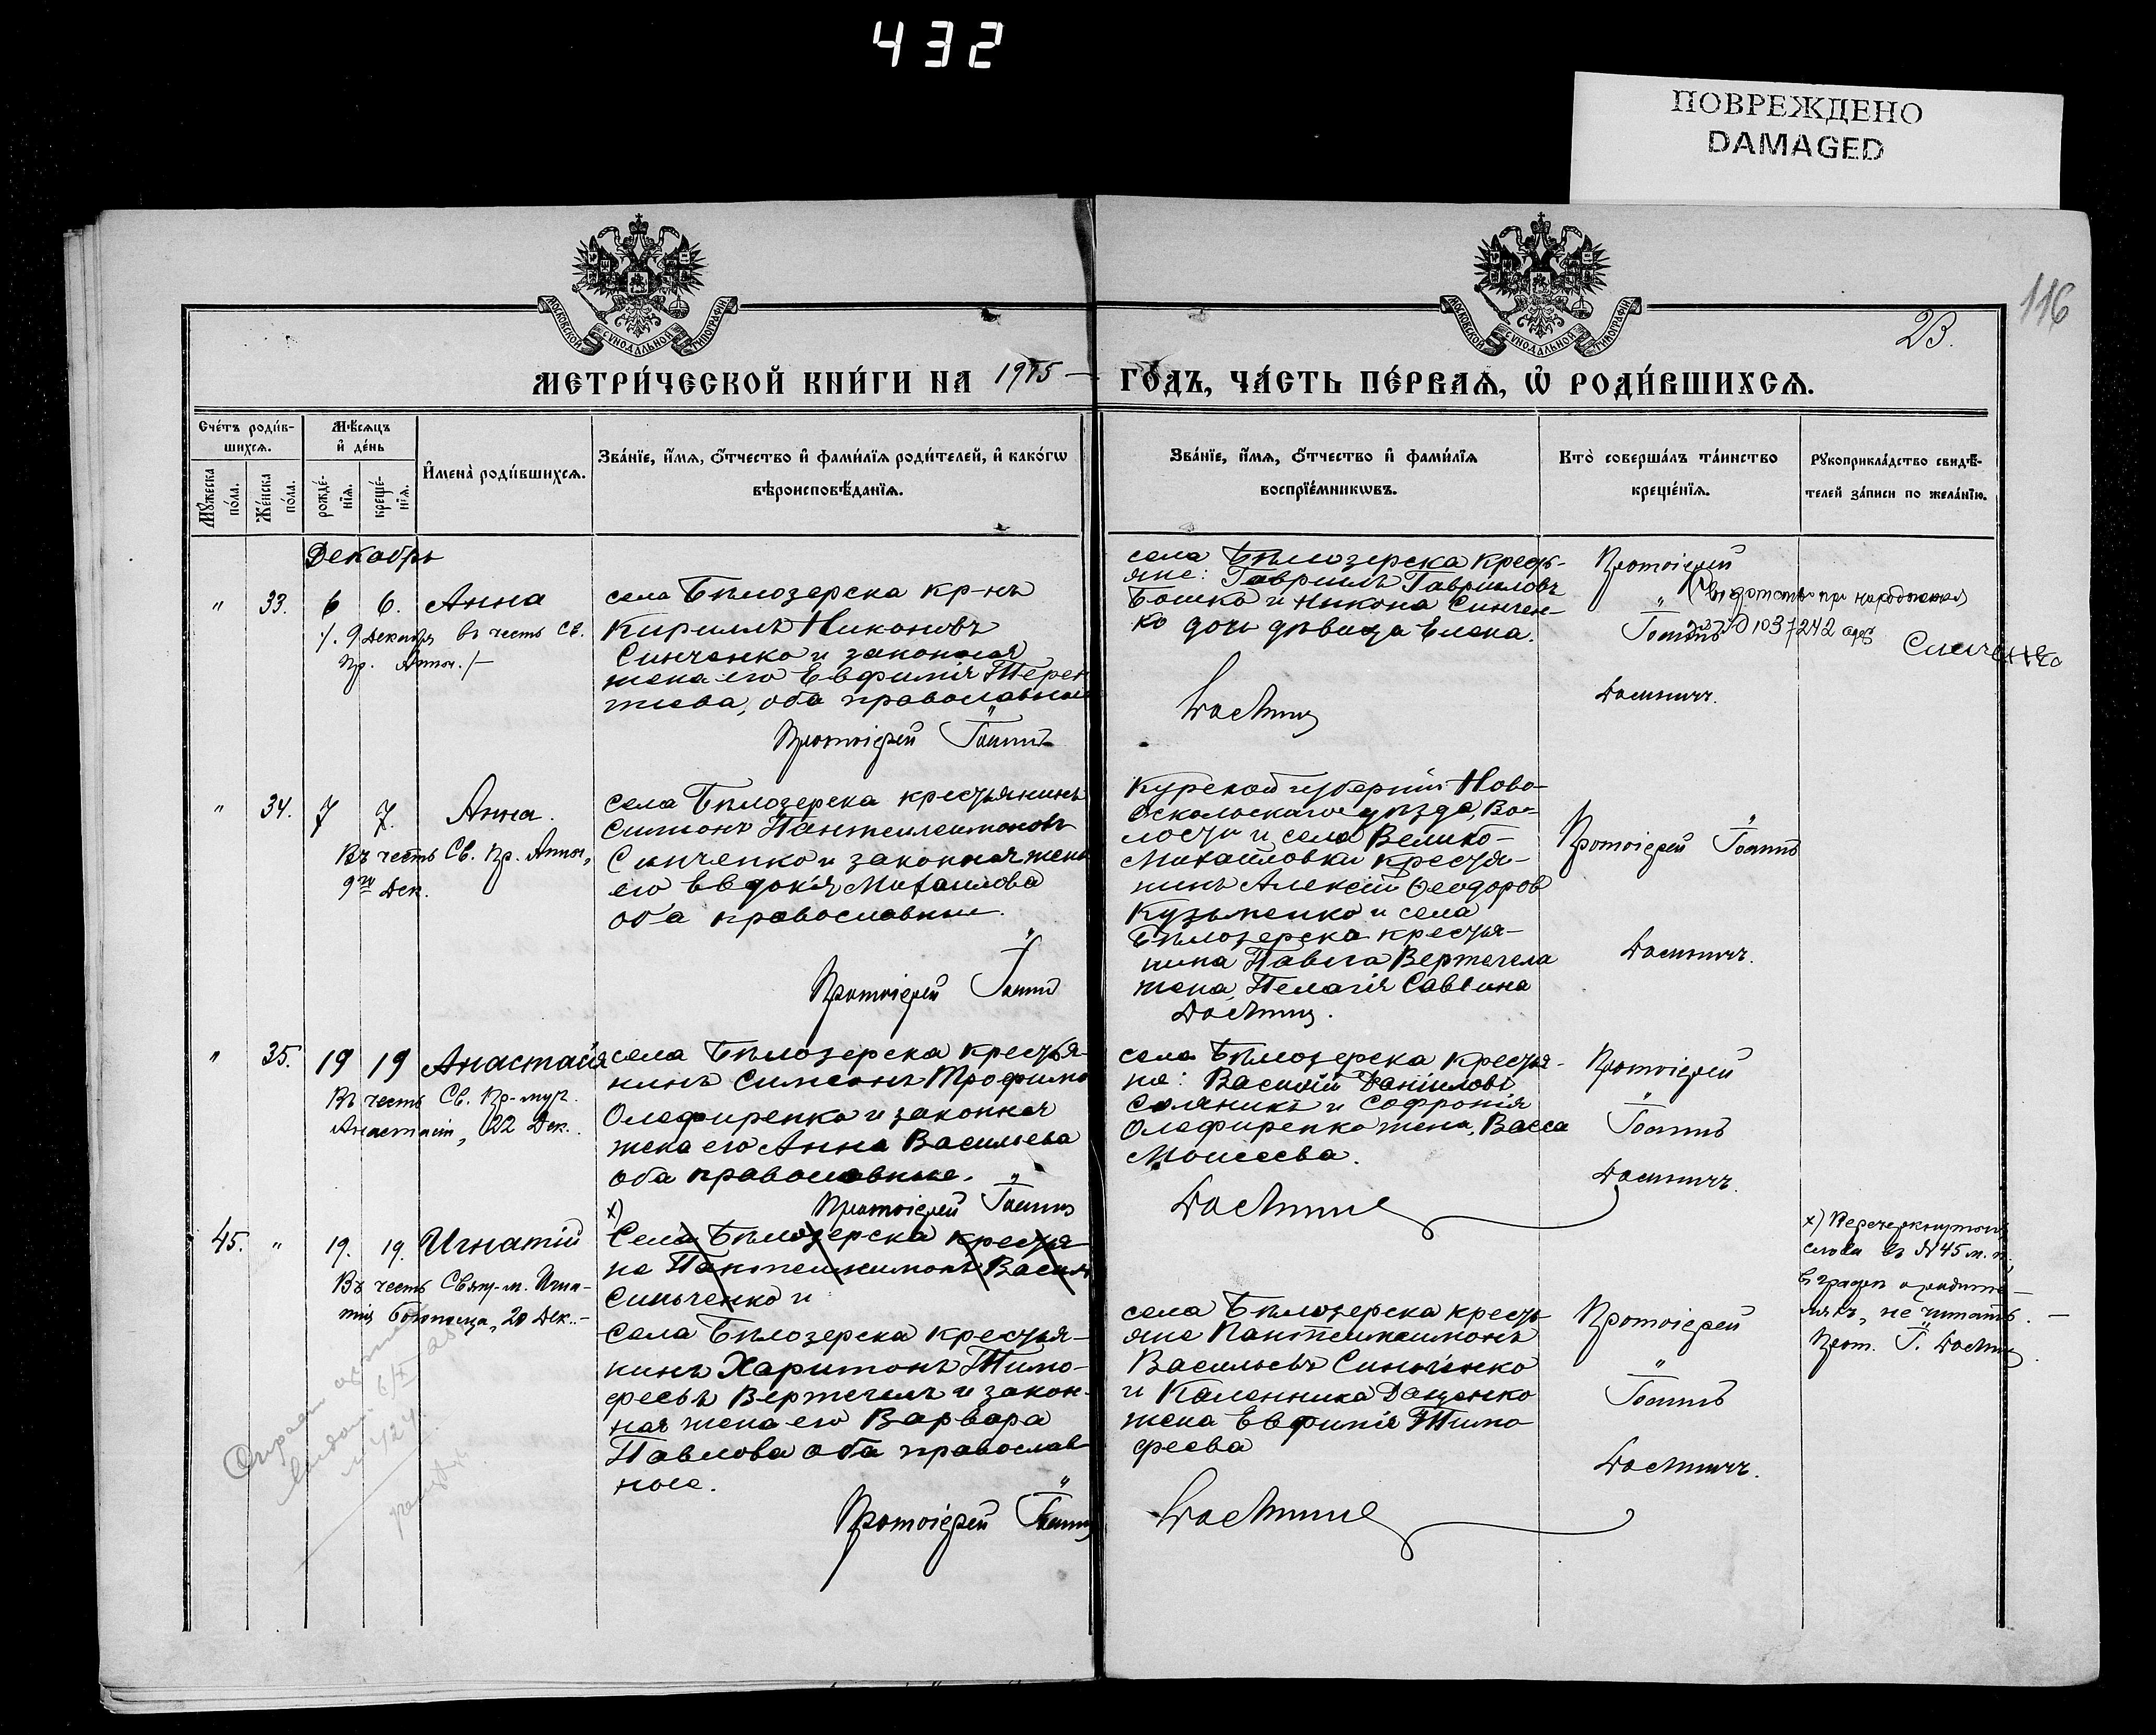 432
ПОВРЕЖДЕНО
DAMAGED
116
23.
МОСКОВСКОЙ СѴНОДАЛЬНОЙ ТИПОГРАФІИ
МОСКОВСКОЙ СѴНОДАЛЬНОЙ ТИПОГРАФІИ
МЕТРИ́ЧЕСКОЙ КНИ́ГИ НА 1915 — ГО́ДЪ, ЧА́СТЬ ПЕ́РВАѦ, Ѽ РОДИ́ВШИХСѦ.
Сче́тъ роди́в-
шихсѧ.
Мꙋ́жеска по́ла.
Же́нска по́ла.
Мѣ́сѧцъ
и҆ де́нь
рожде́-
нїѧ.
креще́-
нїѧ.
И҆мена̀ роди́вшихсѧ.
Зва́нїе, и҆́мѧ, ѻ҆́тчество и҆ фами́лїѧ роди́телей, и҆ како́гѡ
вѣроисповѣ́данїѧ.
Зва́нїе, и҆́мѧ, ѻ҆́тчество и҆ фами́лїѧ
воспрїе́мникѡвъ.
Кто̀ соверша́лъ та́инство
креще́нїѧ.
Рꙋкоприкла́дство свидѣ́-
телей за́писи по жела́нїю.
Декабрь
" 33. 6 6. Анна
/. 9 Декабря въ честь Св.
Пр. Анны./—
села Бѣлозерска кр-нъ
Кириллъ Никоновъ
Синченко и законная
жена его Евфимія Терен
тіева, оба православные
Протоіерей Іоаннъ
села Бѣлозерска кресть-
яне: Гавріилъ Гавріиловъ
Бошко и Никона Синчен-
ко дочь дѣвица Елена.
Протоіерей
Іоаннъ
Синченко
" 34. 7 7. Анна.
Въ честь Св. Пр. Анны,
9го Дек.
Села Бѣлозерска крестьянинъ
Симонъ Пантелеимоновъ
Синченко и законная жена
его Евдокія Михаилова
оба православные.
Протоіерей Іоаннъ
Курской губерніи Ново-
оскольскаго уѣзда, Во-
лости и села Велико-
Михайловки крестья-
нинъ Алексій Ѳеодоров
Кузьменко и села
Бѣлозерска крестья-
нина Павла Вертегела
жена, Пелагія Саввина
Протоіерей Іоаннъ
" 35. 19 19 Анастасія
Въ честь Св. Вр-муч.
Анастасіи, 22 Дек.
села Бѣлозерска крестья-
нинъ Симеонъ Трофимо
Олефиренко и законная
жена его Анна Васильева
оба православные.
Протоіерей Іоаннъ
села Бѣлозерска крестья-
не: Василій Даніиловъ
Соляникъ и Софронія
Олефиренко жена, Васса
Моисеева.
Протоіерей
Іоаннъ
45. " 19. 19. Игнатій
Въ честь Свящ-м. Игна-
тія Богоносца, 20 Дек.-
х)
Села Бѣлозерска крестья
не Пантелеимонъ Васил
Синченко и
Села Бѣлозерска крестья-
нинъ Харитонъ Тимо-
феевъ Вертегелъ и закон-
ная жена его Варвара
Павлова оба православ
ные.
Протоіерей Іоаннъ
села Бѣлозерска кресть-
яне Пантелеимонъ
Васильевъ Синченко
и Каленника Даценко
жена Евфимія Тимо
феева
Протоіерей
Іоаннъ
х) Перечеркнутыя
слова въ № 45 м. п.,
въ графѣ о родите-
ляхъ, не читать. —
Прот. І.